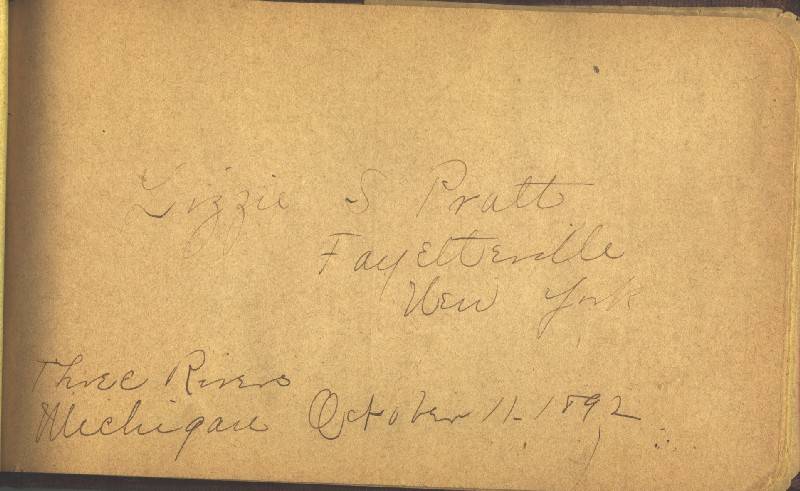 Lizzie S Pratt
Fayetteville
New York
Three Rivers
Michigan October 11 - 1892